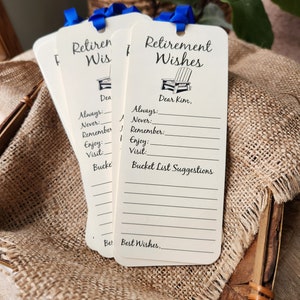 Retirement
Wishes
Dear Kim,
Always:
Never:
Remember:
Enjoy:
Visit:
Bucket List Suggestions
Best Wishes,
Retirement
Wishes
Always:
Never:
Remember:
Enjoy:
Visit: